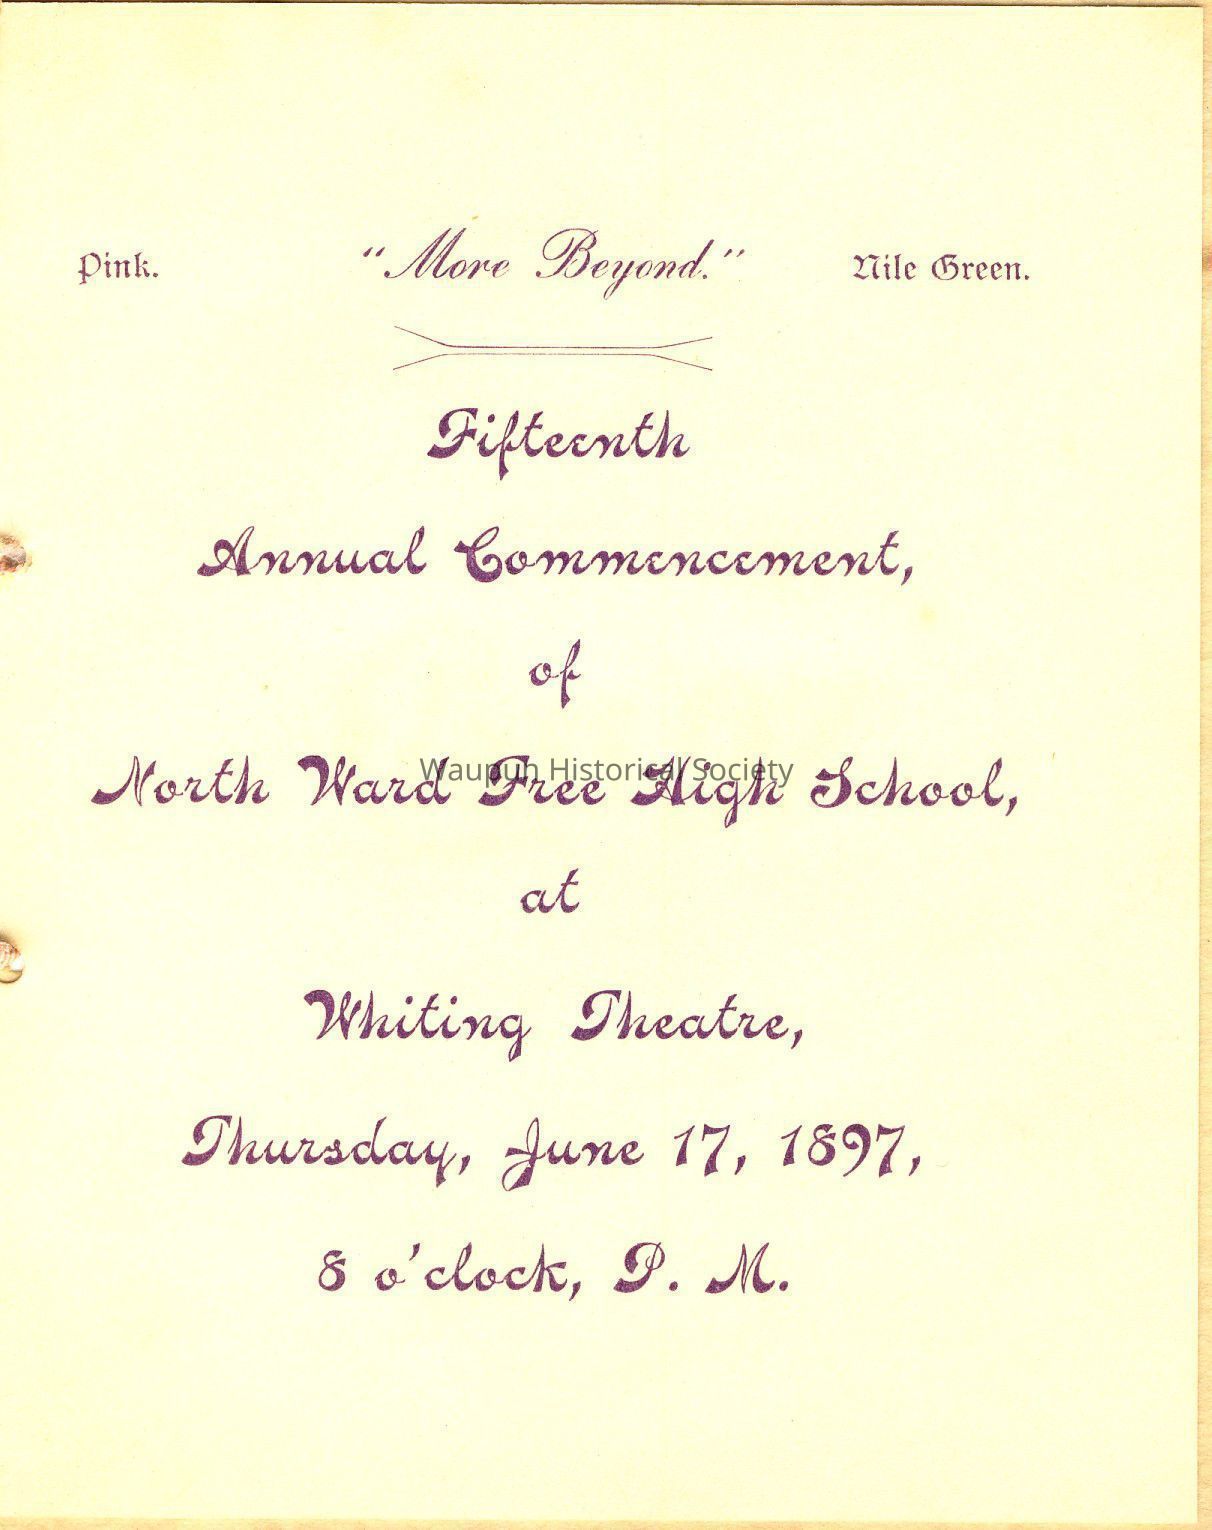 Pink. "More Beyond." Nile Green.
Fifteenth
Annual Commencement,
of
North Ward Free High School,
Waupun Historical Society
at
Whiting Theatre,
Thursday, June 17, 1897,
8 o'clock, P. M.